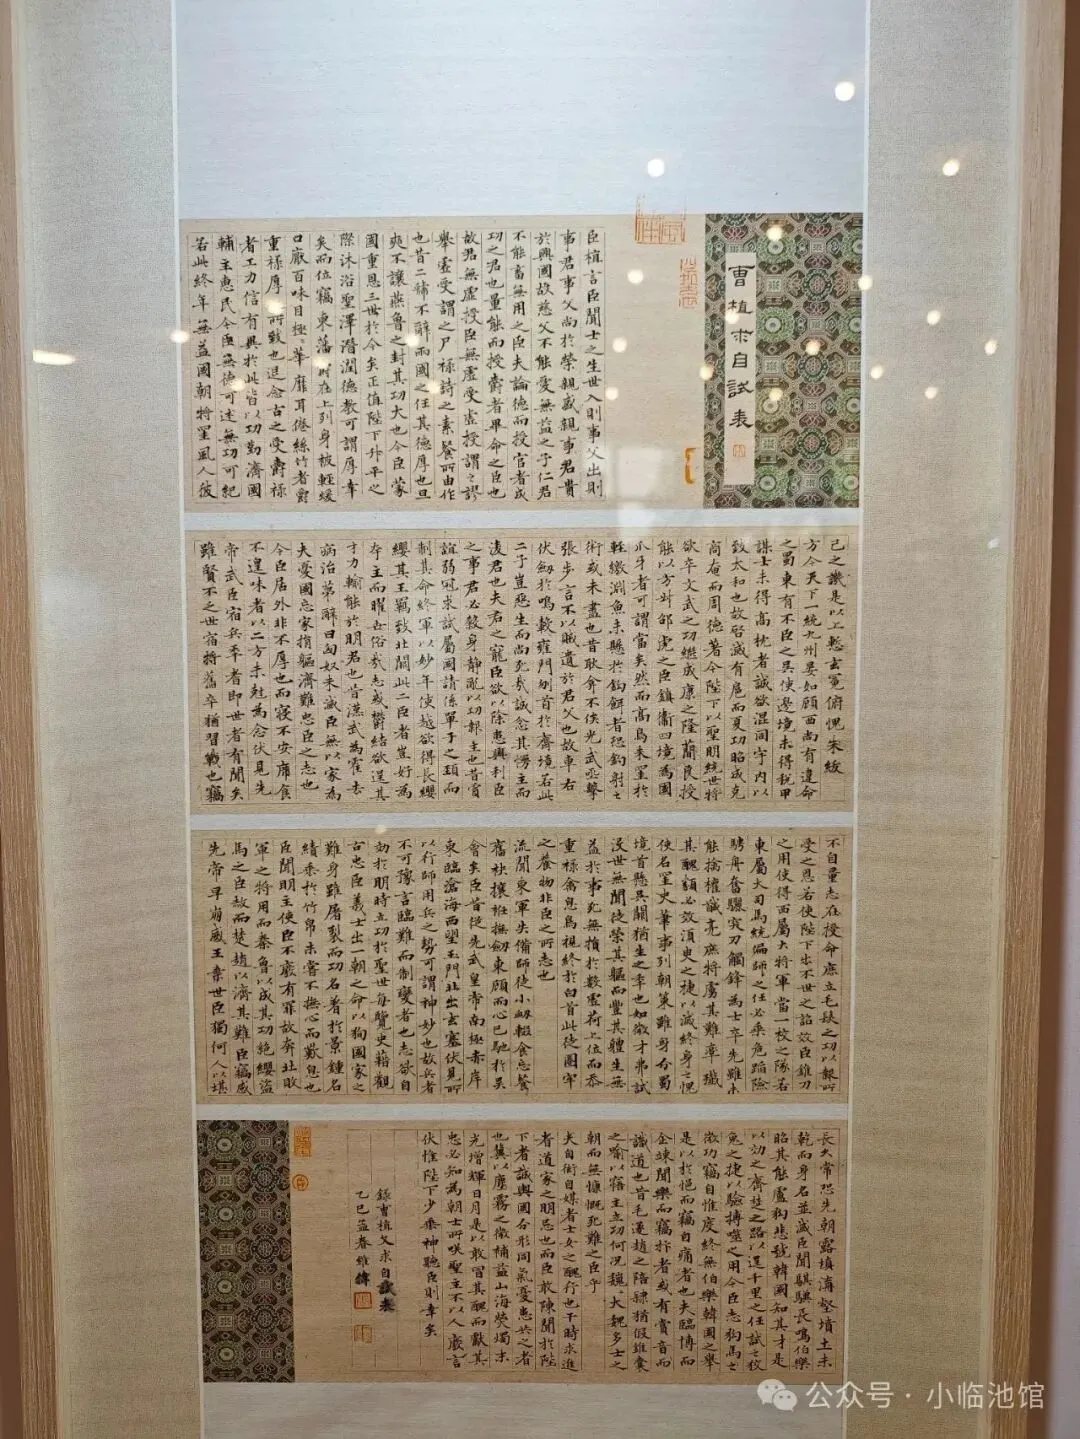 曹植求自試表
臣植言臣聞士之生世入則事父出則
事君事父尚於榮親事君貴
於興國故慈父不能愛無益之子仁君
不能畜無用之臣夫論德而授官者成
功之君也量能而授爵者畢命之臣也
故君無虛授臣無虛受虛授謂之謬
舉虛受謂之尸祿詩之素餐所由作
也昔二虢不辭兩國之任其德厚也旦
奭不讓燕魯之封其功大也今臣蒙
國重恩三世於今矣正值陛下升平之
際沐浴聖澤潛潤德教可謂厚幸
矣而位竊東藩爵在上列身被輕緩
口厭百味目極華靡耳倦絲竹者爵
重祿厚所致也退念古之受爵祿
者有異於此皆以功勤濟國
輔主惠民今臣無德可述無功可紀
若此終年無益國朝將罣風人彼
己之譏是以上慙玄冕俯愧朱紱
方今天下一統九州晏如顧西尚有違命
之蜀東有不臣之吳使邊境未得稅甲
謀士未得高枕者誠欲混同宇內以
致太和也故啓滅有扈而夏功昭成克
商奄而周德著今陛下以聖明統世將
欲卒文武之功繼成康之隆簡良授
能以方叔邵虎之臣鎮衞四境為國
爪牙者可謂當矣然而高鳥未罣於
輕繳淵魚未懸於鈎餌者恐釣射之
術或未盡也昔耿弇不俟光武亟擊
張步言不以賊遺於君父也故車右
伏劍於鳴轂雍門刎首於齊境若此
二子豈惡生而尚死哉誠念其慢主而
淩君也夫君之寵臣欲以除患興利臣
之事君必殺身靜亂以功報主也昔賈
誼弱冠求試屬國請係單于之頸而
制其命終軍以妙年使越欲得長纓
纓其王羈致北闕此二臣者豈好為
夸主而曜世俗哉志或鬱結欲逞其
才力輸能於明君也昔漢武為霍去
病治第辭曰匈奴未滅臣無以家為
夫憂國忘家捐軀濟難忠臣之志也
今臣居外非不厚也而寢不安席食
不遑味者以二方未尅為念伏見先
帝武臣宿兵年者即世者有聞矣
雖賢不乏世宿將舊卒猶習戰也竊
不自量志在授命庶立毛髮之功以報所
受之恩若使陛下出不世之詔效臣錐刀
之用使得西屬大將軍當一校之隊若
東屬大司馬統偏師之任必乘危蹈險
騁舟奮驪突刃觸鋒為士卒先雖未
能擒權馘亮庶將虜其雄率殲
其醜類必效須臾之捷以滅終身之愧
使名罣史筆事列朝策雖身分蜀
境首懸吳闕猶生之年也如微才弗試
沒世無聞徒榮其軀而豐其體生無
益於事死無損於數虛荷上位而忝
重祿禽息鳥視終於白首此徒圈牢
之養物非臣之所志也
流聞東軍失備師徒小衂輟食忘餐
奮袂攘袵撫劍東顧而心已馳於吳
會矣臣昔從先武皇帝南極赤岸
東臨滄海西望玉門北出玄塞伏見所
以行師用兵之勢可謂神妙也故兵者
不可豫言臨難而制變者也志欲自
効於明時立功於聖世每覽史籍觀
古忠臣義士出一朝之命以狥國家之
難身雖屠裂而功名著於景鍾名
績垂於竹帛未嘗不撫心而歎息也
臣聞明主使臣不廢有罪故奔北敗
軍之將用而秦魯以成其功絕纓盜
馬之臣赦而楚趙以濟其難臣竊感
先帝早崩威王棄世臣獨何人以堪
長久常恐先朝露填溝壑墳土未
乾而身名並滅臣聞騏驥長鳴伯樂
昭其能盧狗悲號韓國知其才是
以効之齊楚之路以逞千里之任試之狡
兔之捷以驗搏噬之用今臣志狗馬之
微功竊自惟度終無伯樂韓國之舉
是以於悒而竊自痛者也夫臨博而
企竦聞樂而竊抃者或有賞音而
識道也昔毛遂趙之陪隸猶假錐囊
之喻以寤主立功何況巍巍大魏多士之
朝而無慷慨死難之臣乎
夫自衒自媒者士女之醜行也干時求進
者道家之明忌也而臣敢陳聞於陛
下者誠與國分形同氣憂患共之者
也冀以塵霧之微補益山海熒燭末
光增輝日月是以敢冒其醜而獻其
忠必知為朝士所笑聖主不以人廢言
伏惟陛下少垂神聽臣則幸矣
錄曹植文求自試表
乙巳孟春維偉
公众号·小临池馆